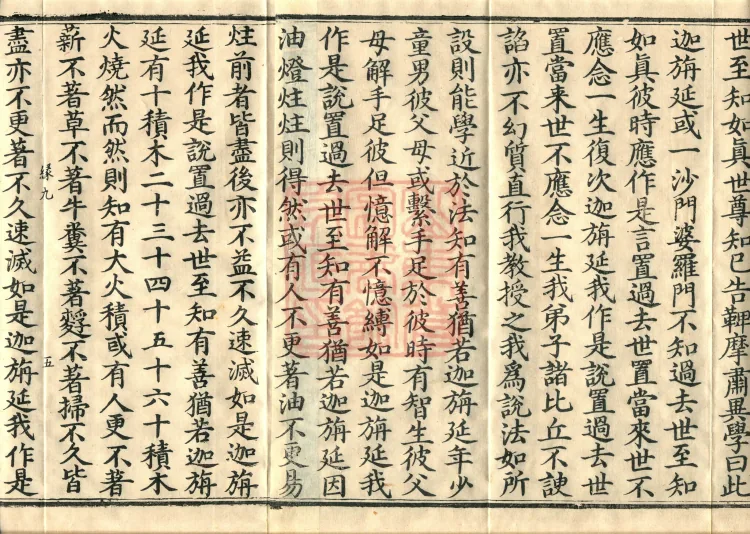 世至知如眞世尊知已告鞞摩肅異學曰此
迦旃延或一沙門婆羅門不知過去世至知
如眞彼時應作是言置過去世置當來世不
應念一生復次迦旃延我作是說置過去世
置當來世不應念一生我弟子諸比丘不諛
諂亦不幻質直行我教授之我爲說法如所
設則能學近於法知有善猶若迦旃延年少
童男彼父母或繫手足於彼時有智生彼父
母解手足彼但憶解不憶縛如是迦旃延我
作是說置過去世至知有善猶若迦旃延因
油燈炷炷則得然或有人不更著油不更易
炷前者皆盡後亦不益不久速滅如是迦旃
延我作是說置過去世至知有善猶若迦旃
延有十積木二十三十四十五十六十積木
火燒然而然則知有大火積或有人更不著
薪不著草不著牛糞不著䴸不著掃不久皆
緣九 五
盡亦不更著不久速滅如是迦旃延我作是